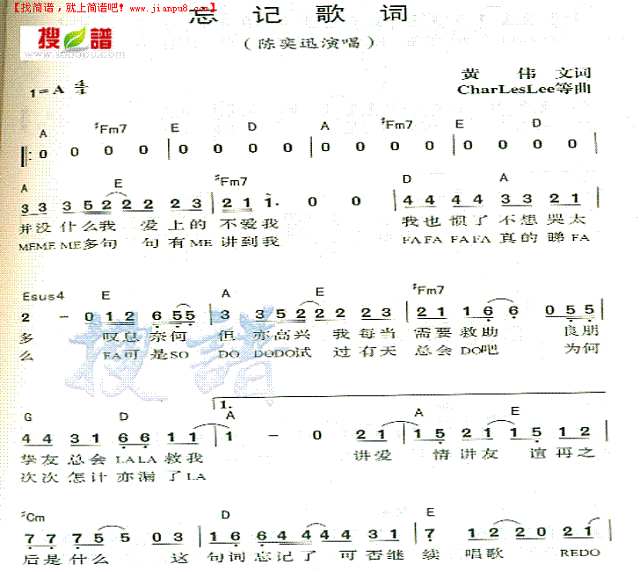 【找简谱，就上简谱吧！www.jianpu8.com】
忘记歌词
搜谱
(陈奕迅演唱)
黄 伟 文词
1=A 4/4
CharLesLee等曲
A #Fm7 E D A #Fm7 E D
0 0 0 0 0 0 0 0 0 0 0 0 0 0 0 0
A E #Fm7 D A
3 3 3 5 2 2 2 2 2 3 2 1 1· 0 0 4 4 4 4 3 3 2 1
并没什么我 爱上的不爱我 我也惯了不想哭太
MEME ME多句 句有ME讲到我 FAFA FAFA真的睇FA
Esus4 E A E #Fm7
2 - 0 1 2 6 5 5 3 3 5 2 2 2 2 2 3 2 1 1 6 6 0 5 5
多 叹息奈何 但亦高兴 我每当需要救助 良朋
么 FA可是SO DO DODO试 过有天总会DO吧 为何
搜谱
G D 1. A A E
4 4 3 1 6 6 1 1 1 - 0 2 1 1 5 2 1 1 5 1 2
挚友总会LALA救我 讲爱 情讲友 谊再之
次次怎计亦漏了LA
#Cm D E
7 7 7 5 5 0 3 1 6 6 4 4 4 3 3 1 7 1 2 2 0 2 1
后是什么 这句词忘记了可否继续 唱歌 REDO